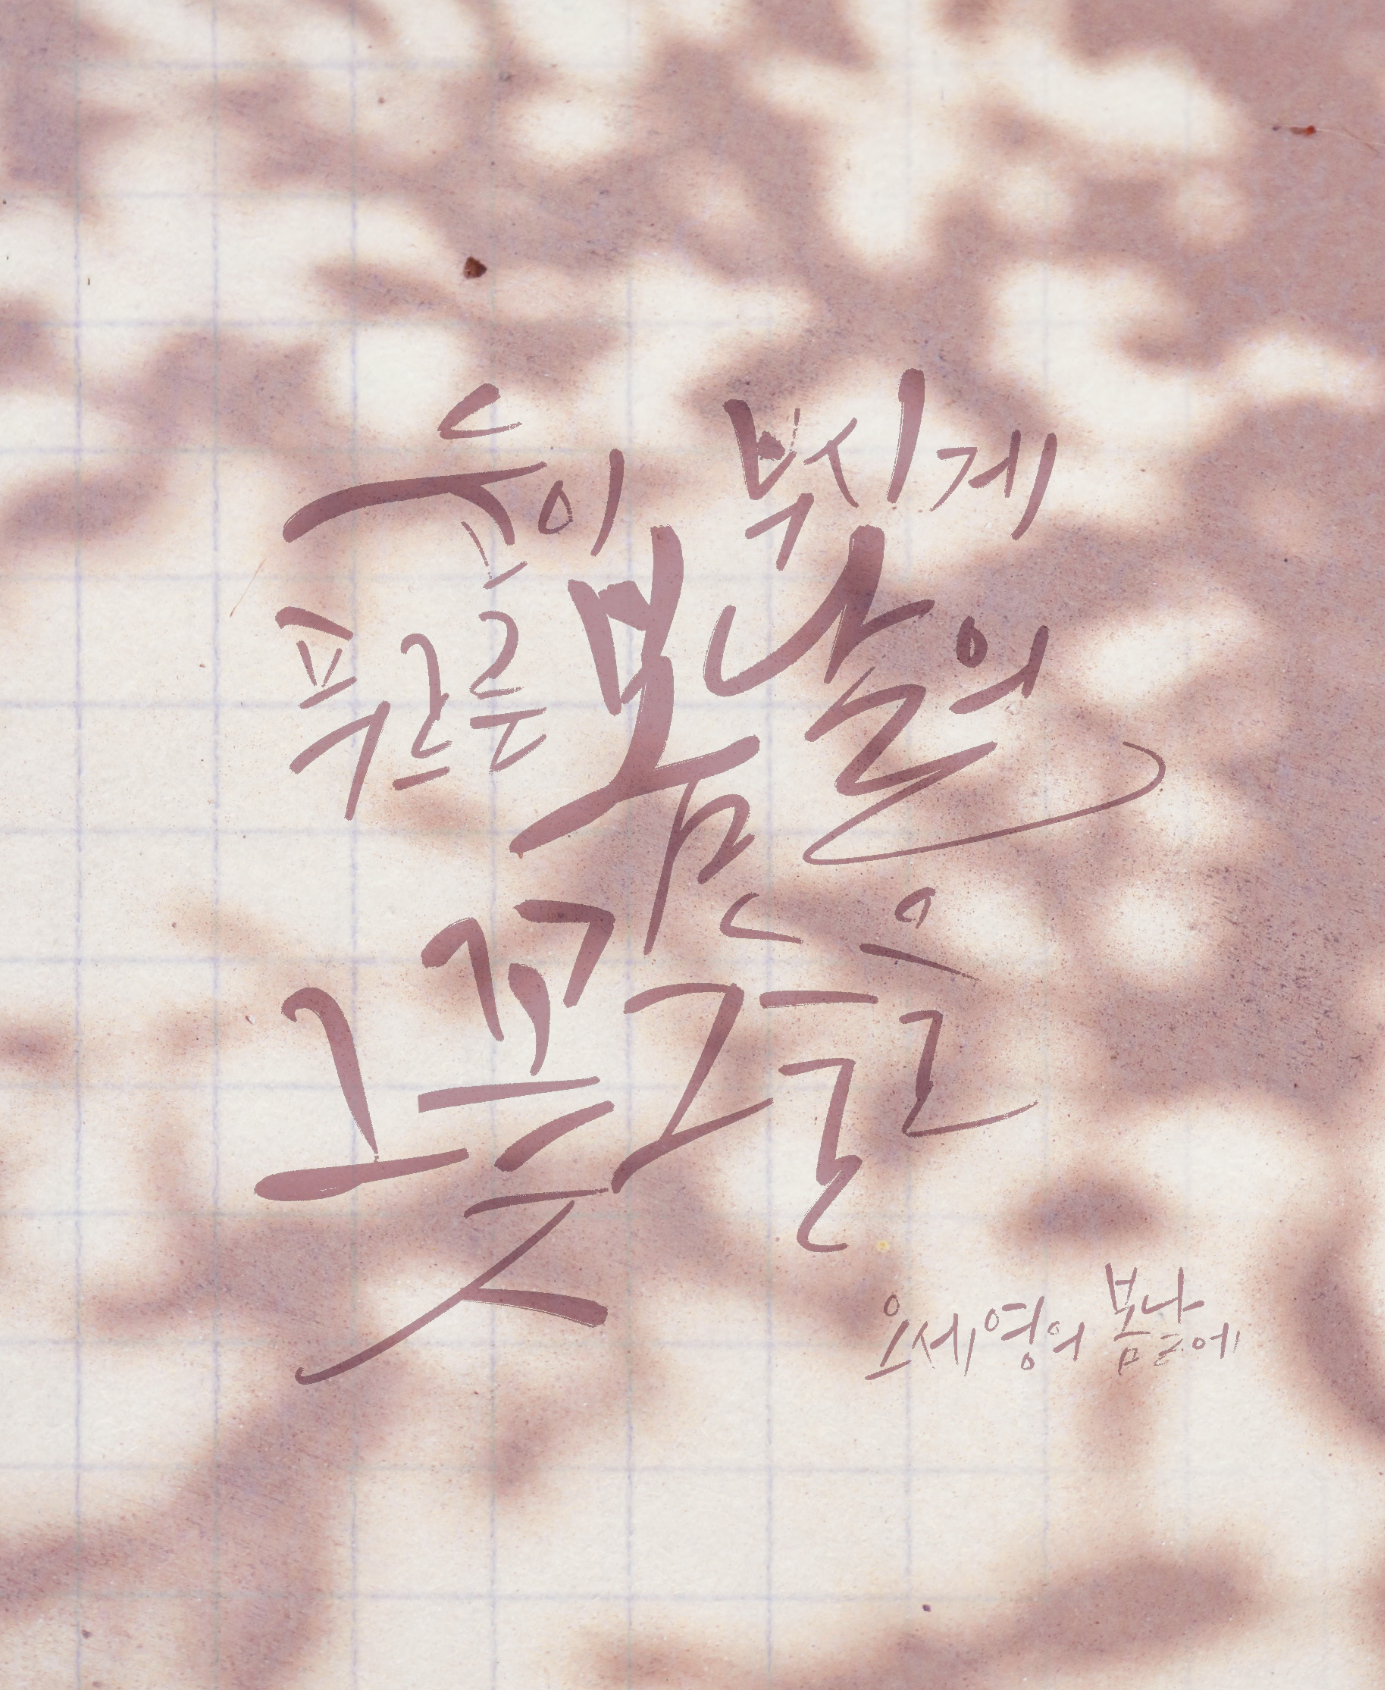 눈이 부시게
푸르른 봄날의
그 꽃그늘을
오세영의 봄날에